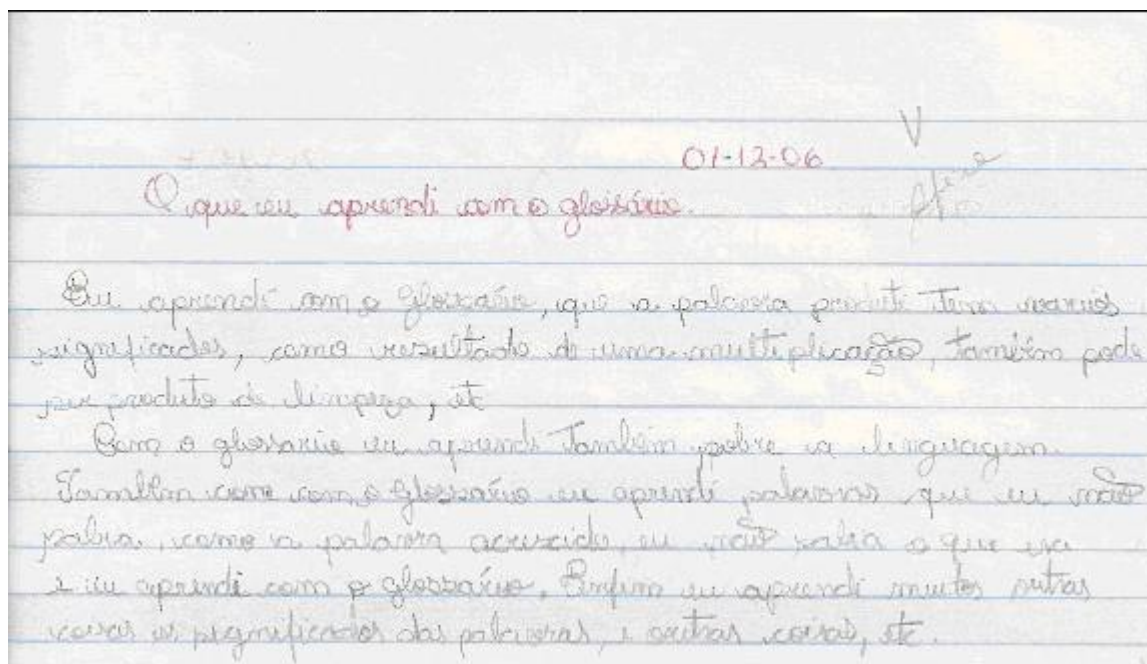 01-12-06 V
O que eu aprendi com o glossário.
Eu aprendi com o Glossário, que a palavra produto tem varios
significados, como resultado de uma multiplicação, também pode
ser produto de limpeza, etc
Com o glossario eu aprendi também sobre a linguagem.
Também com o Glossário eu aprendi palavras que eu não
sabia, como a palavra acrescido, eu não sabia o que era
e eu aprendi com o glossário. Enfim eu aprendi muitos outras
coisas os significados das palavras, e outras coisas, etc.